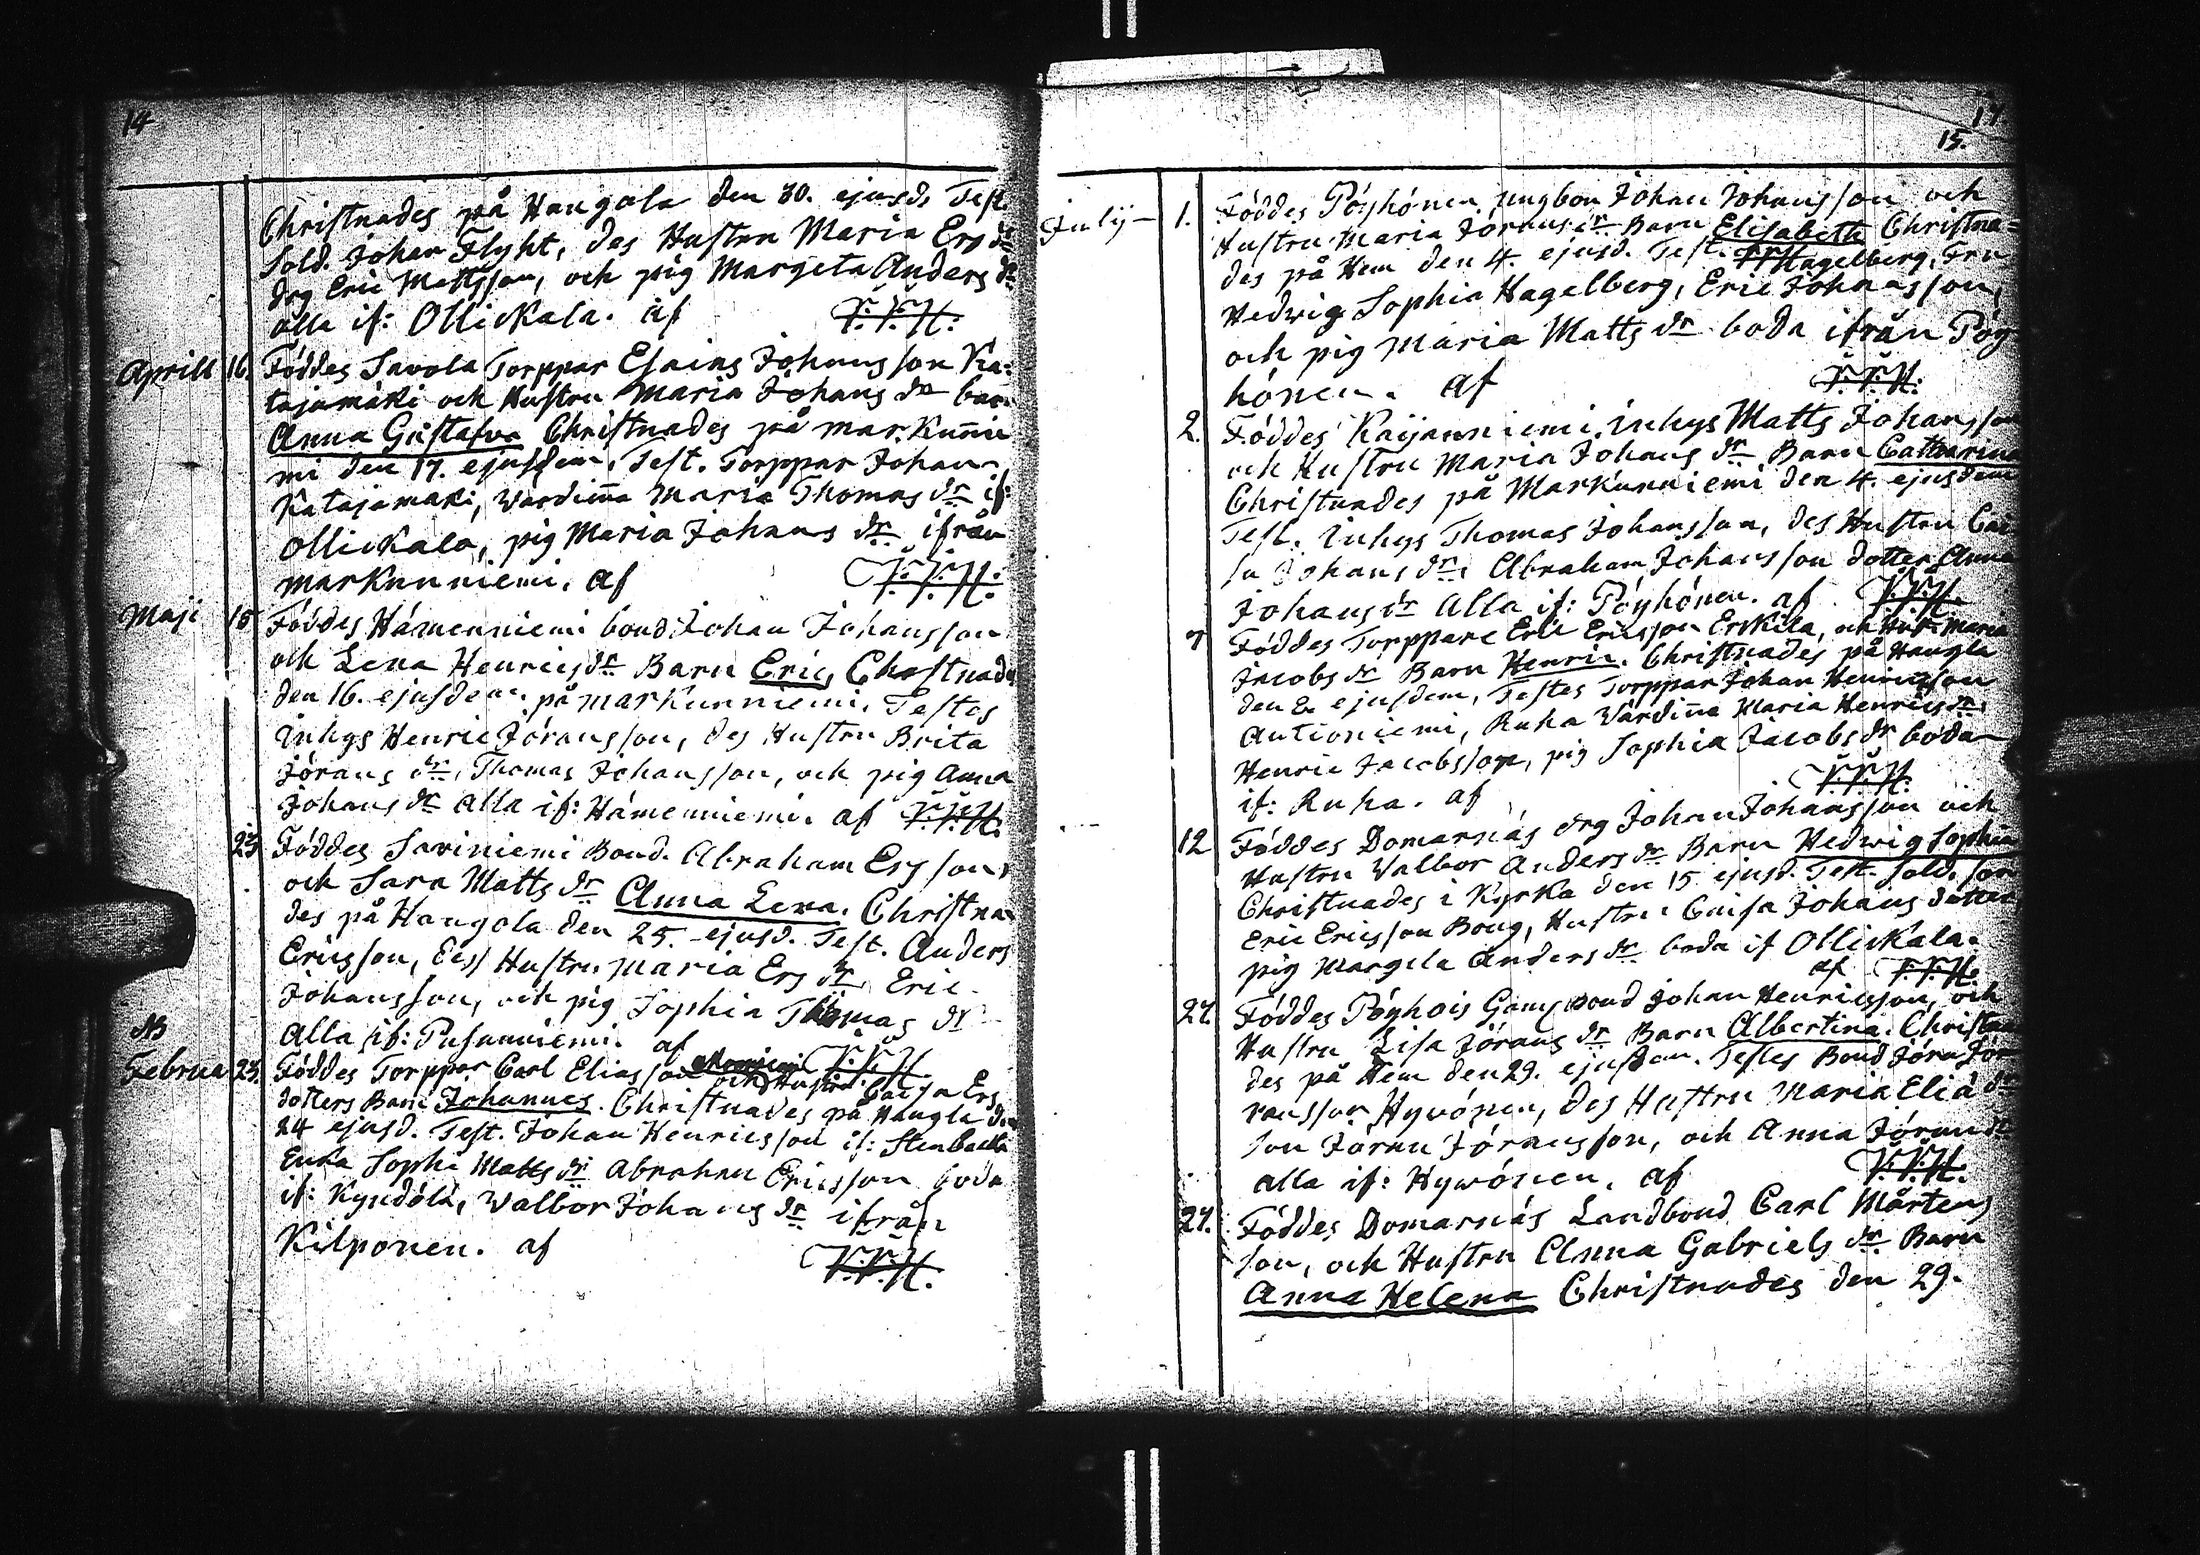 14
Christnades på Haugola den 30. ejusd. Test.
Sold. Johan Flyht, des Hustru Maria Ers dr
drg Eric Mattsson, och pig Margeta Anders dr
alla if: Ollickala. af F.F.H.
Aprill 16. Föddes Savola Torppar Esaias Johansson Ka=
tajamäki och Hustru Maria Johans dr barn
Anna Gustafva Christnades på Markunnie
mi den 17. ejusdem. Test. Torppar Johan
Katajamäki, Wärdinna Maria Thomas dr if:
Ollickala, pig Maria Johans dr ifrån
Markunniemi. af F.F.H.
Maji 15 Föddes Hämenniemi bond Johan Johansson
och Lena Henrics dr Barn Eric, Christnades
den 16. ejusdem på Markunniemi, Testes
Inhys Henric Jöransson, des Hustru Brita
Jörans dr, Thomas Johansson, och pig Anna
Johans dr alla if: Hämenniemi. af F.F.H.
23 Föddes Saviniemi Bond. Abraham Ersson,
och Sara Matts dr Anna Lena. Christna=
des på Haugola den 25. ejusd. Test. Anders
Ericsson, dess Hustru Maria Ers dr, Eric
Johansson, och pig Sophia Thomas dr
Alla if: Pusunniemi. af F.F.H.
NB
Februa 23. Föddes Torppar Carl Eliasson och Hustru Caisa Ers
dotters Barn Johannes. Christnades på Haugla den
24 ejusd. Test. Johan Henricsson if: Stenbacka
Enka Sophi Matts dr Abraham Ericsson boda
if: Kyndölä, Walbor Johans dr ifrån
Kilponen. af F.F.H.
17
15.
Julij 1. Föddes Pöyhönen ungbon Johan Johansson och
Hustru Maria Jörans dr Barn Elisabeth Christna=
des på Hem den 4. ejusd. Test. Hagelberg, Fru
Hedwig Sophia Hagelberg, Eric Johansson,
och pig Maria Matts dr boda ifrån Pöy
hönen. af F.F.H.
2. Föddes Kaijanniemi Inhys Matts Johansson
och Hustru Maria Johans dr Barn Catharina
Christnades på Markunniemi den 4. ejusdem
Test. Inhys Thomas Johansson, des Hustru Cai
sa Johans dr, Abraham Johansson dotter Anna
Johans dr Alla if: Pöyhönen. af F.F.H.
7 Föddes Torppare Eric Ericsson Erkilä, och Hust: Maria
Jacobs dr Barn Henric. Christnades på Haugla
den 8. ejusdem, Testes Torppar Johan Henricsson
Autioniemi, Ruha Wärdinna Maria Henrics dr,
Henric Jacobsson, pig Sophia Jacobs dr boda
if: Ruha. af F.F.H.
12 Föddes Domarnäs drg Johan Johansson och
Hustru Walbor Anders dr Barn Hedwig Sophia
Christnades i Kyrka den 15 ejusd. Test. Sold. for
Eric Ericsson Boug, Hustru Caisa Johans dotter
pig Margeta Anders dr boda if Ollickala.
af F.F.H.
27. Föddes Pöyhöis Gamy bond Johan Henricsson, och
Hustru Lisa Jörans dr Barn Albertina. Christna
des på Hem den 29. ejusdem. Testes Bond Jöran Jö
ransson Hywönen, des Hustru Maria Elia dr
son Jöran Jöransson, och Anna Jörans dr
alla if: Hywönen. af F.F.H.
27. Föddes Domarnäs Landbond Carl Mårtens
son, och Hustru Anna Gabriels dr Barn
Anna Helena Christnades den 29.